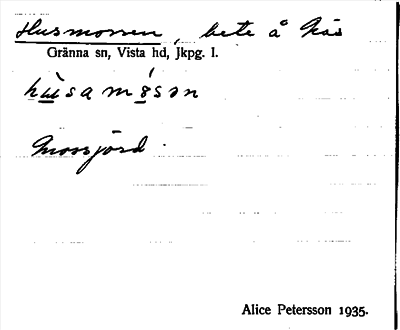 Husmossen, bete å Näs
Gränna sn, Vista hd, Jkpg. l.
hùsamósən
Mossjord.
Alice Petersson 1935.